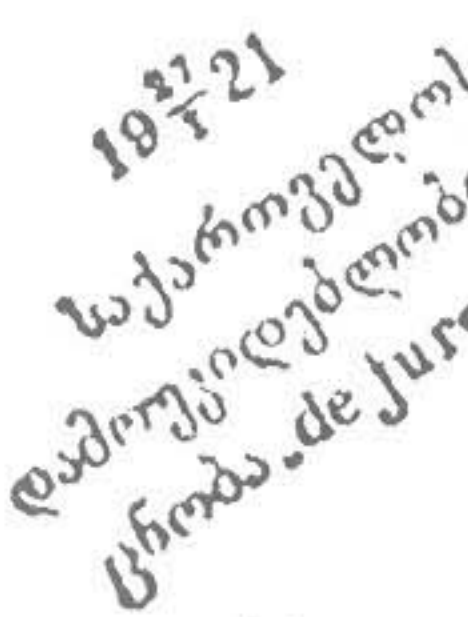 19 27/I 21
საქართველოს
დამოუკიდებლობ
ცნობა. de jure